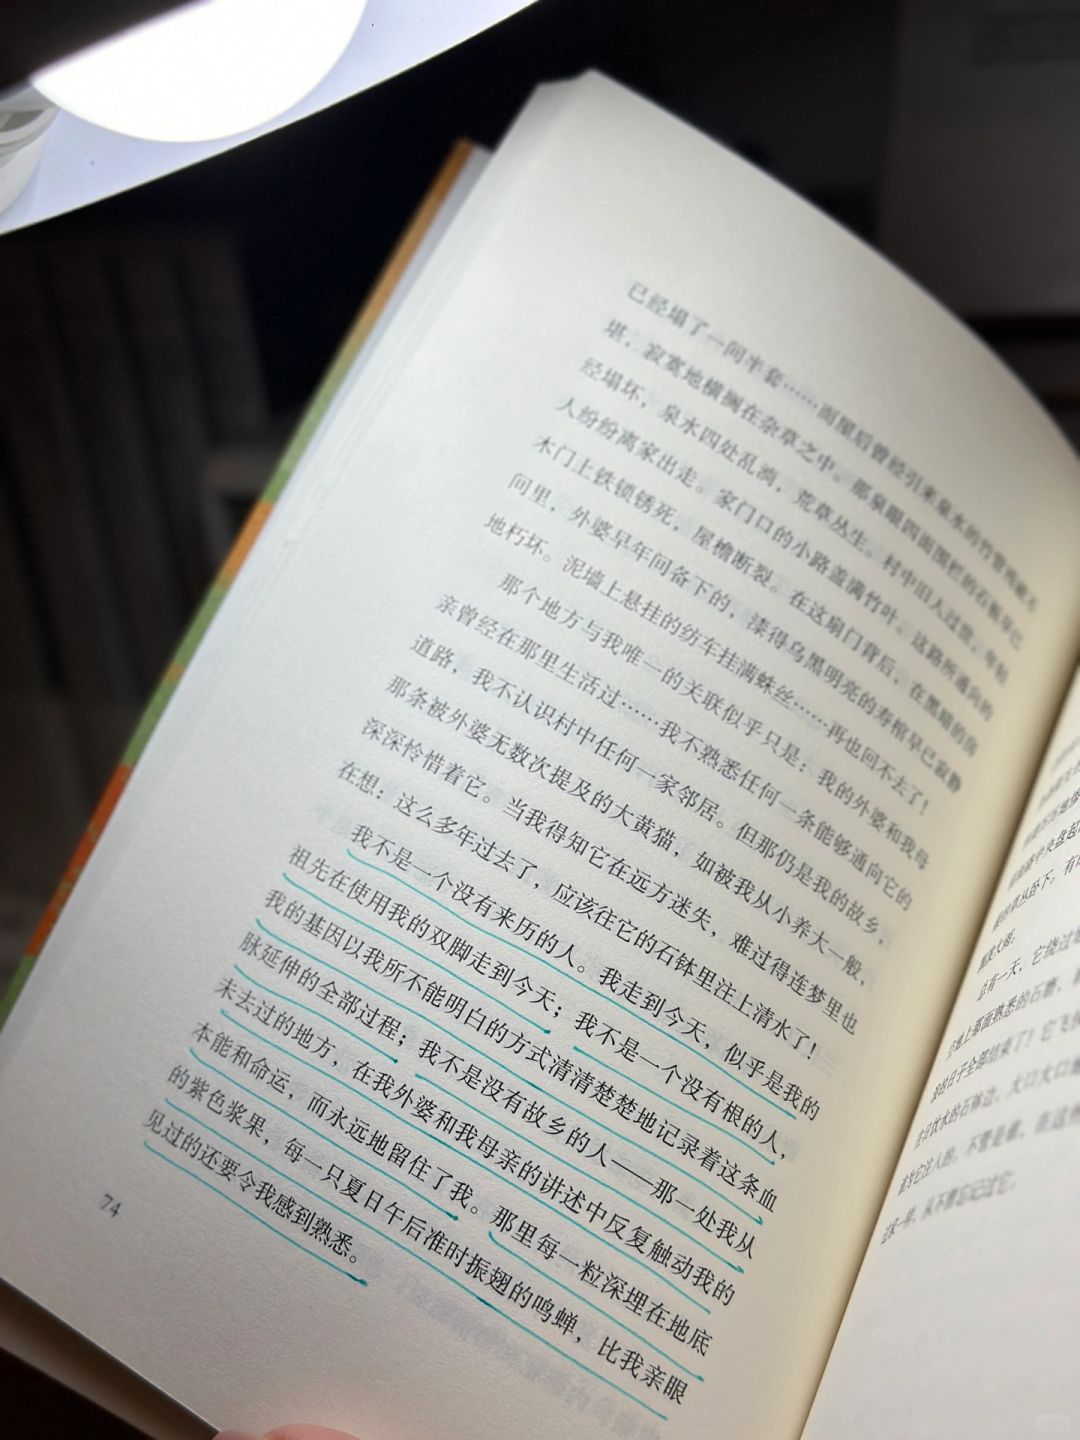 已经塌了一间半套……而屋后曾经引来泉水的竹管残破不
堪，寂寞地横搁在杂草之中。那泉眼四面围栏的石板早已
经塌坏，泉水四处乱淌，荒草丛生。村中旧人过世，年轻
人纷纷离家出走。家门口的小路盖满竹叶。这路所通向的
木门上铁锁锈死，屋檐断裂。在这扇门背后，在黑暗的房
间里，外婆早年间备下的，漆得乌黑明亮的寿棺早已寂静
地朽坏。泥墙上悬挂的纺车挂满蛛丝……再也回不去了！
那个地方与我唯一的关联似乎只是：我的外婆和我母
亲曾经在那里生活过……我不熟悉任何一条能够通向它的
道路，我不认识村中任何一家邻居。但那仍是我的故乡，
那条被外婆无数次提及的大黄猫，如被我从小养大一般，
深深怜惜着它。当我得知它在远方迷失，难过得连梦里也
在想：这么多年过去了，应该往它的石钵里注上清水了！
我不是一个没有来历的人。我走到今天，似乎是我的
祖先在使用我的双脚走到今天；我不是一个没有根的人，
我的基因以我所不能明白的方式清清楚楚地记录着这条血
脉延伸的全部过程；我不是没有故乡的人——那一处我从
未去过的地方，在我外婆和我母亲的讲述中反复触动我的
本能和命运，而永远地留住了我。那里每一粒深埋在地底
的紫色浆果，每一只夏日午后准时振翅的鸣蝉，比我亲眼
见过的还要令我感到熟悉。
74
总有一天，它绕过